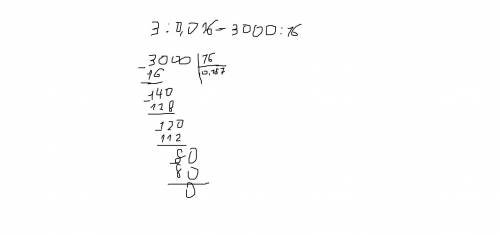 3 : 0,016 = 3000 : 16
- 3000 | 16
16 0,187
- 140
128
- 120
112
- 80
80
0